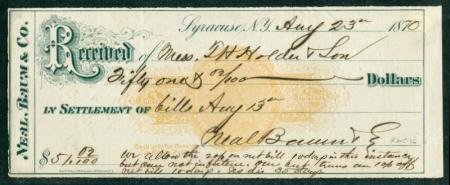 NEAL, BAUM & CO.
Syracuse, N.Y. Aug 23d 1870
Received of Mess. T H Holder & Son
Fifty one & 02/100 Dollars
IN SETTLEMENT OF bills Aug 13th
Neal Baum & Co
$51,02/100
We allow the 2% on net bill 10 days in this instance
but can not in future. Our terms are
net bill 10 days. 30 days